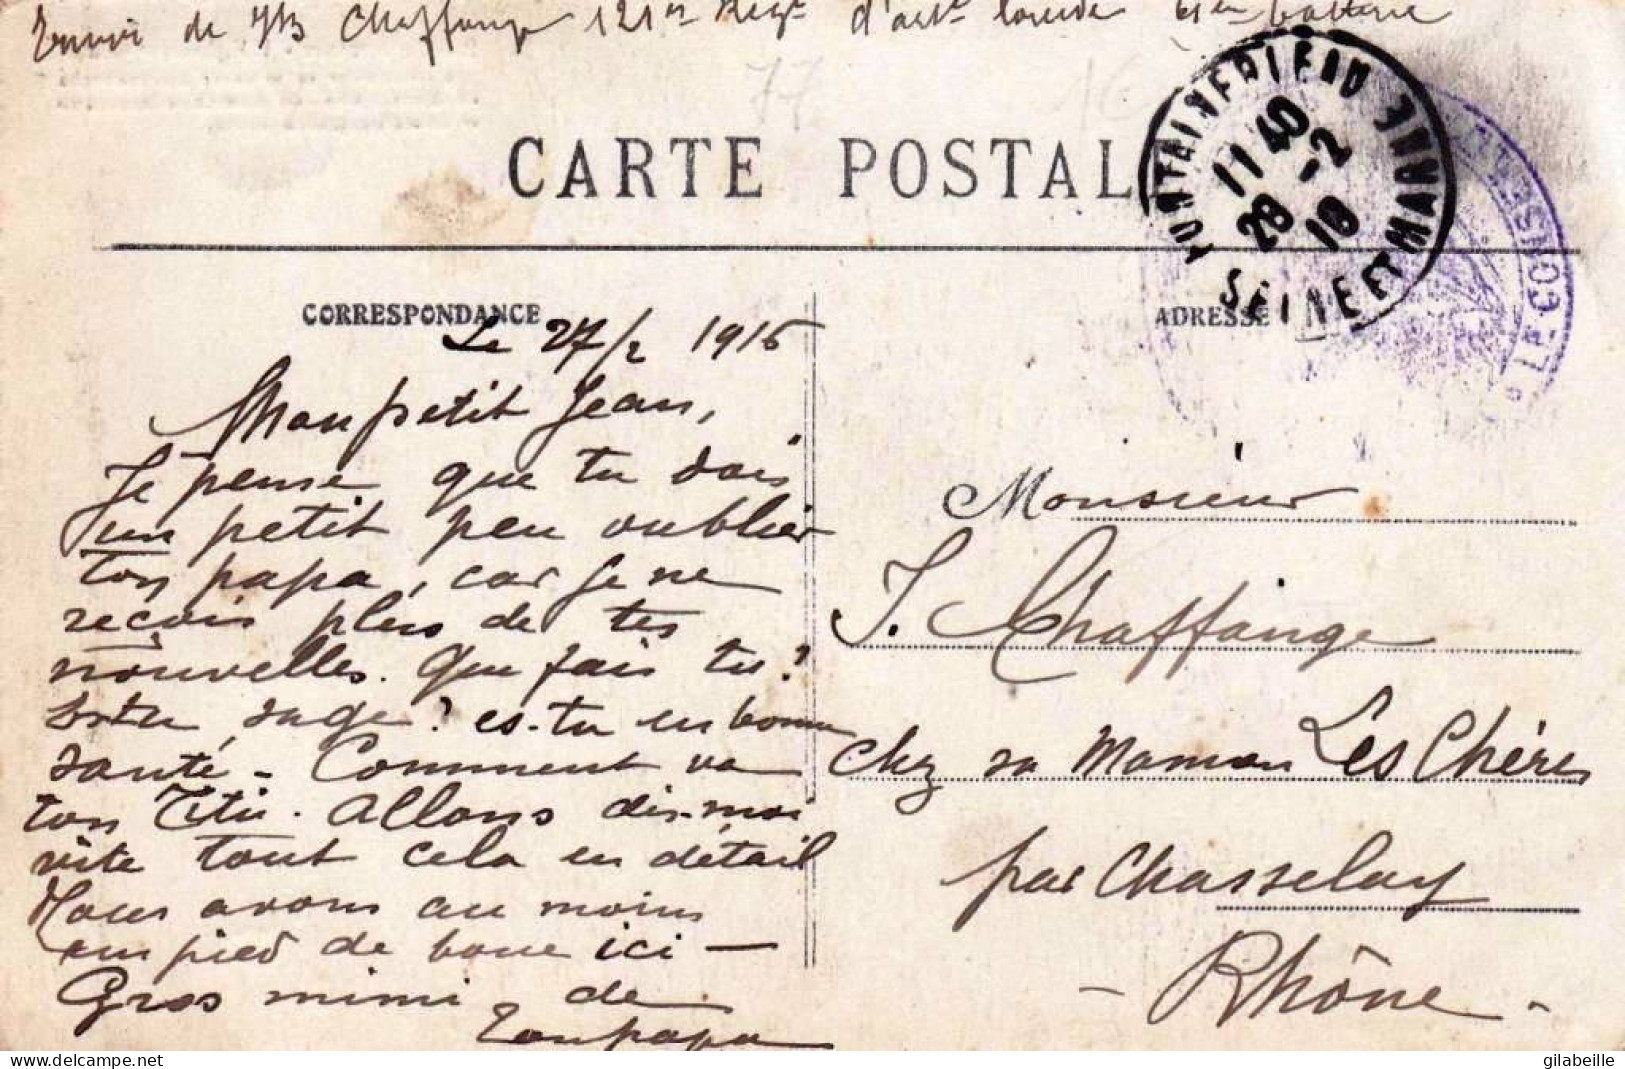 Envoi de JB Chaffange 121em Regt d'artie lourde 61em batterie
CARTE POSTALE
FONTAINEBLEAU
11 40
28 -2
16
SEINE ET MARNE
LE CONSE
CORRESPONDANCE
ADRESSE
Le 27/2 1916
Mon petit Jean,
Je pense que tu dois
un petit peu oublier
ton papa, car je ne
reçois plus de tes
nouvelles. Que fais tu?
Es tu sage? es-tu en bonne
santé - Comment va
ton Titi. Allons dis-moi
vite tout cela en détail
Nous avons au moins
un pied de boue ici —
Gros mimi, de
ton papa
Monsieur
J. Chaffange
chez sa Maman Les Chères
par Chasselay
- Rhône -
delcampe.net
gilabeille